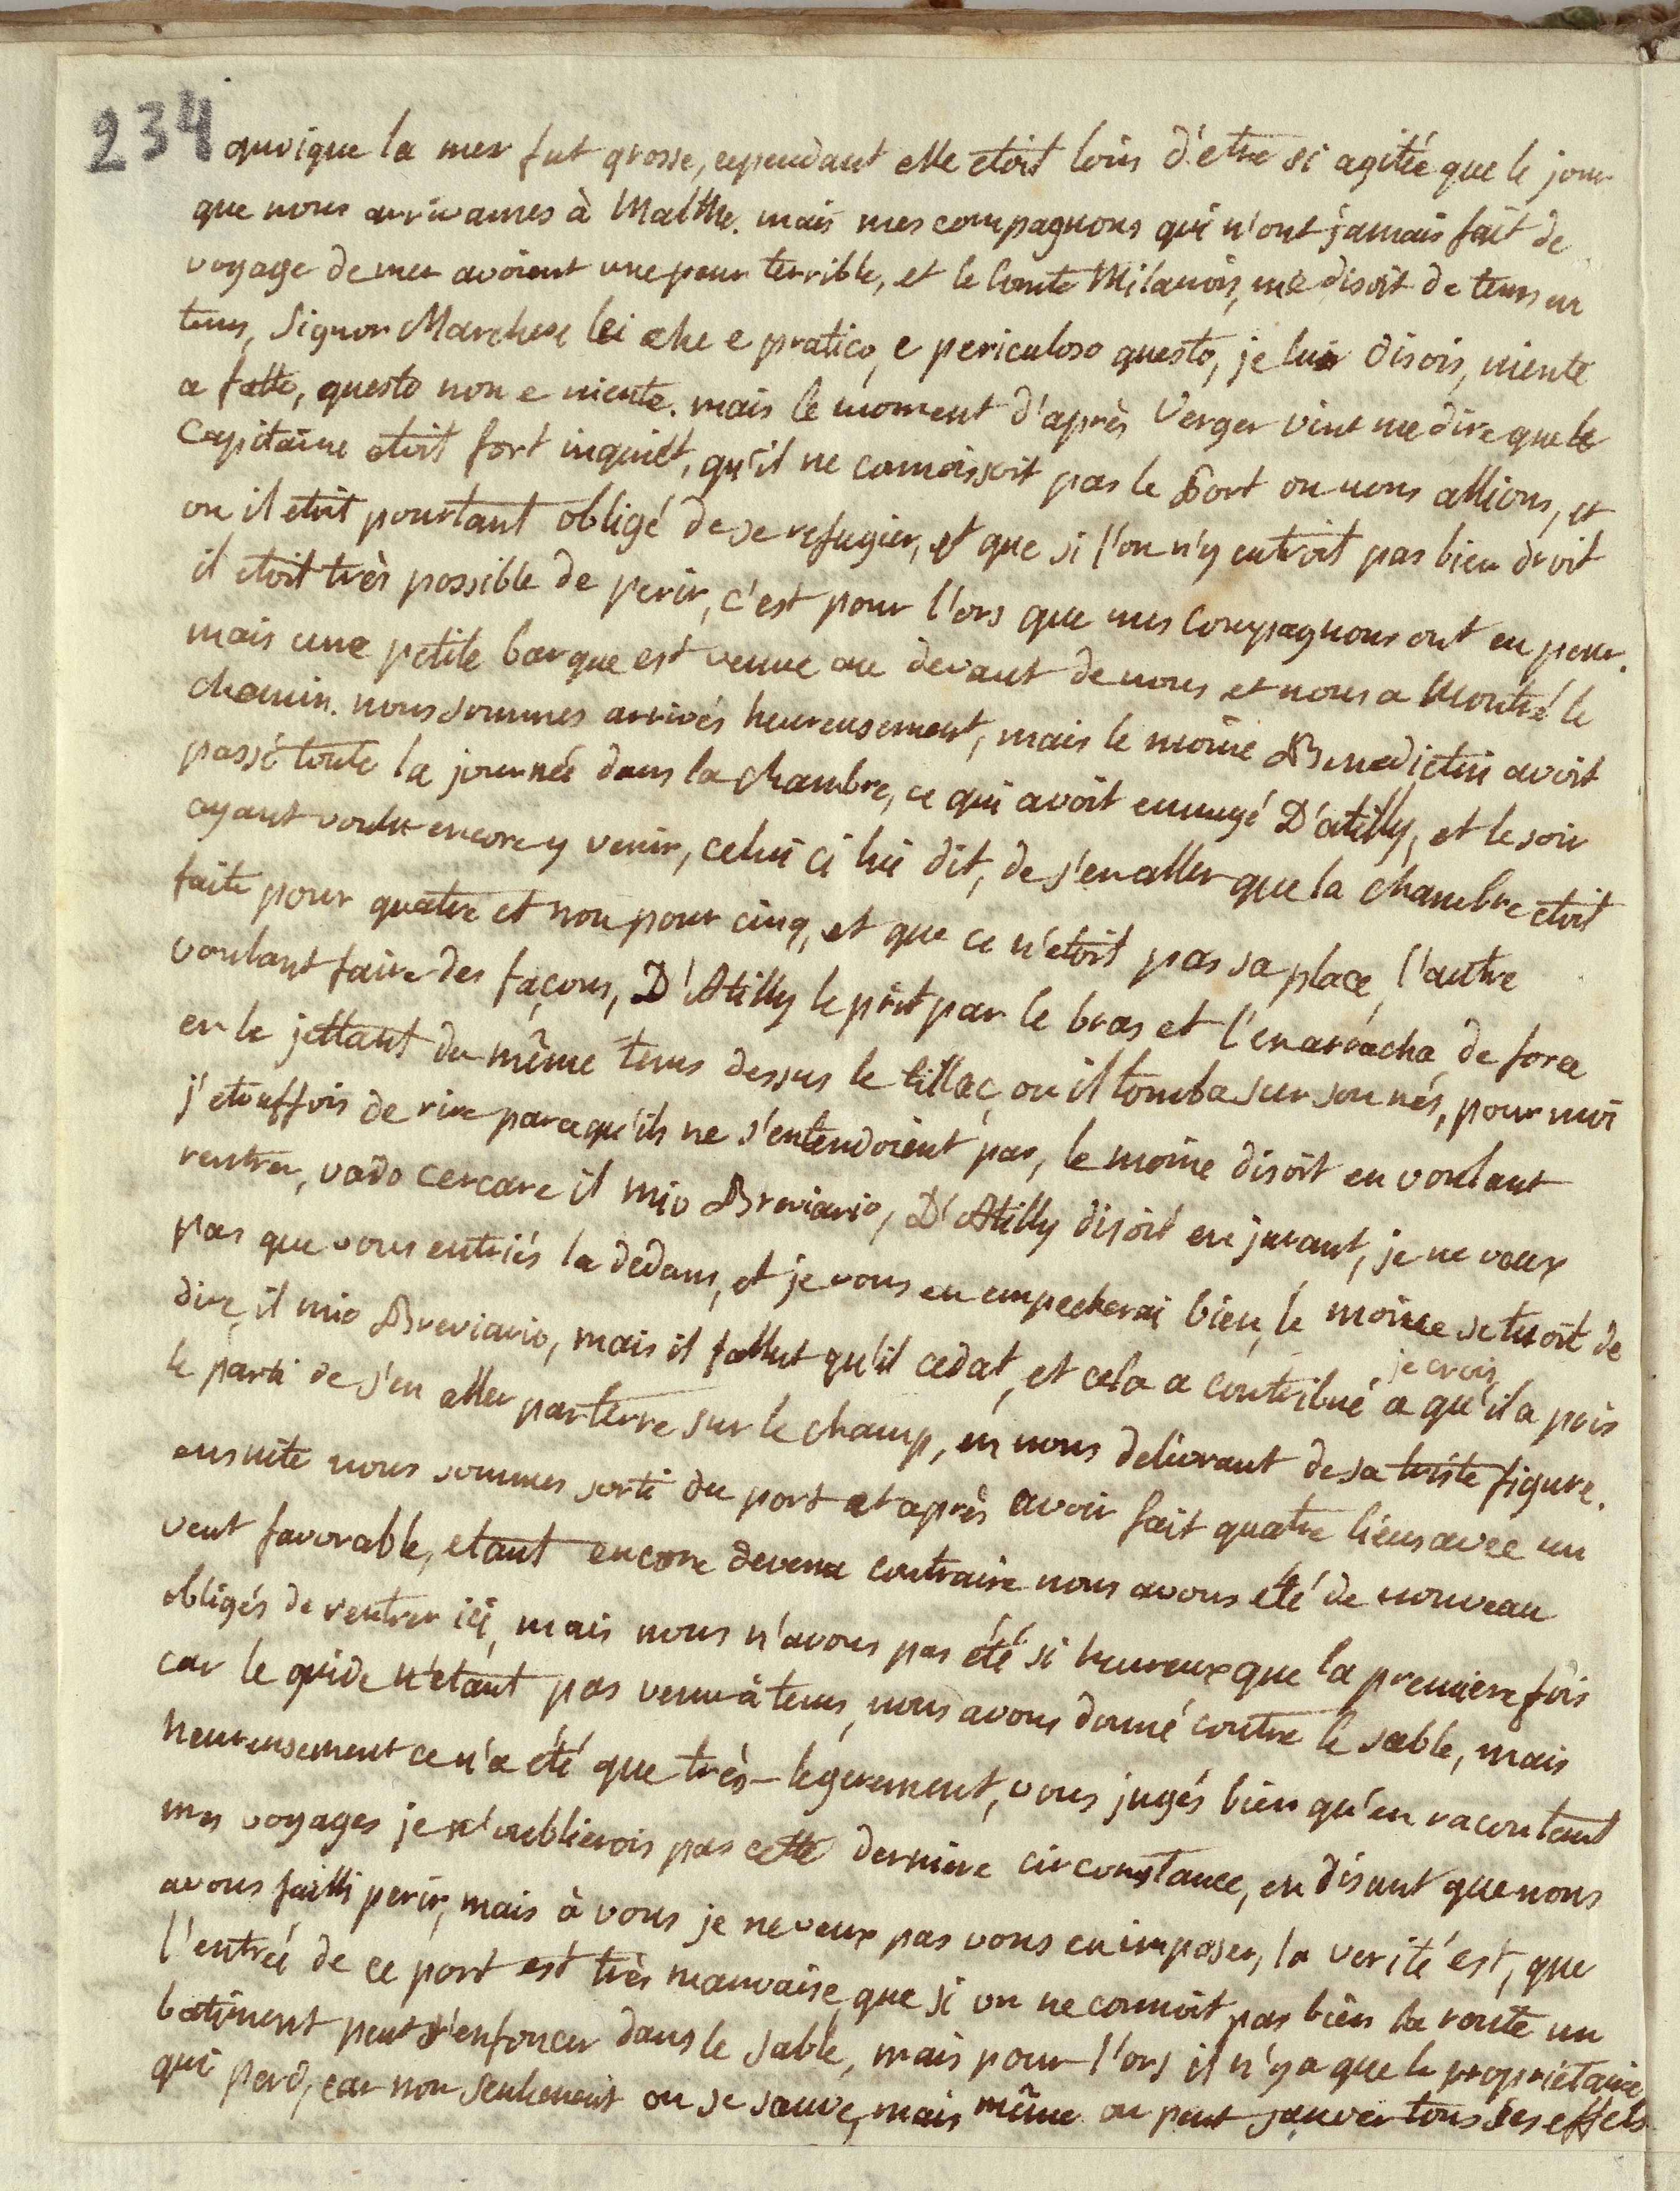 234
quoique la mer fut grosse, cependant elle etoit loin d'être si agitée que le jour
que nous arrivames à Malthe. mais mes compagnons qui n'ont jamais fait de
voyage de mer avoient une peur terrible, et le Comte Milanois, me disoit de tems en
tems, Signor Marchese lei che e pratico, e periculoso questo, je lui disois, niente
a fatto, questo non e niente. mais le moment d'après Verger vint me dire que le
Capitaine etoit fort inquiet, qu'il ne connoissoit pas le Port ou nous allions, et
ou il etoit pourtant obligé de se refugier, et que si l'on n'y entroit pas bien droit
il etoit très possible de perir, c'est pour l'ors que mes Compagnons ont eu peur.
mais une petite barque est venue au devant de nous et nous a montré le
chemin. nous sommes arrivés heureusement, mais le moine Benedictin avoit
passé toute la journée dans la chambre, ce qui avoit ennuyé D'atilly, et le soir
ayant voulu encore y venir, celui ci lui dit, de s'en aller que la chambre etoit
faite pour quatre et non pour cinq, et que ce n'etoit pas sa place, l'autre
voulant faire des façons, D'Atilly le prit par le bras et l'en arracha de force
en le jettant du même tems dessus le tillac, ou il tomba sur son nés, pour moi
j'etouffois de rire parcequ'ils ne s'entendoient pas, le moine disoit en voulant
rentrer, vado cercare il mio Breviario, D'Atilly disoit en jurant, je ne veux
pas que vous entriés la dedans, et je vous en empecherai bien, le moine se tuoit de
dire, il mio Breviario, mais il fallut qu'il cedat, et cela a contribué je crois a qu'il a pris
le parti de s'en aller par terre sur le champ, en nous delivrant de sa triste figure.
ensuite nous sommes sorti du port et après avoir fait quatre lieus avec un
vent favorable, etant encore devenu contraire nous avons été de nouveau
obligés de rentrer ici, mais nous n'avons pas été si heureux que la premiere fois
car le guide n'etant pas venu à tems, nous avons donné contre le sable, mais
heureusement ce n'a été que très-legerement, vous jugés bien qu'en racontant
mes voyages je n'oublierois pas cette derniere circonstance, en disant que nous
avons failli perir, mais à vous je ne veux pas vous en imposer, la verité est, que
l'entrée de ce port est très mauvaise, que si on ne connoit pas bien la route un
batiment peut s'enfoncer dans le sable, mais pour l'ors il n'y a que le propriétaire
qui perd, car non seulement on se sauve, mais même on peut sauver tous ses effets